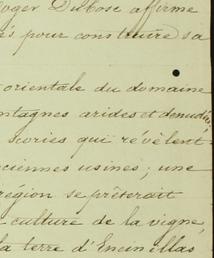 oger DuBose affirme
és pour construire sa
orientale du domaine
ntagnes arides et denudées
scories qui révèlent
nciennes usines; une
région se prêterait
culture de la vigne,
la terre d'Encinillas